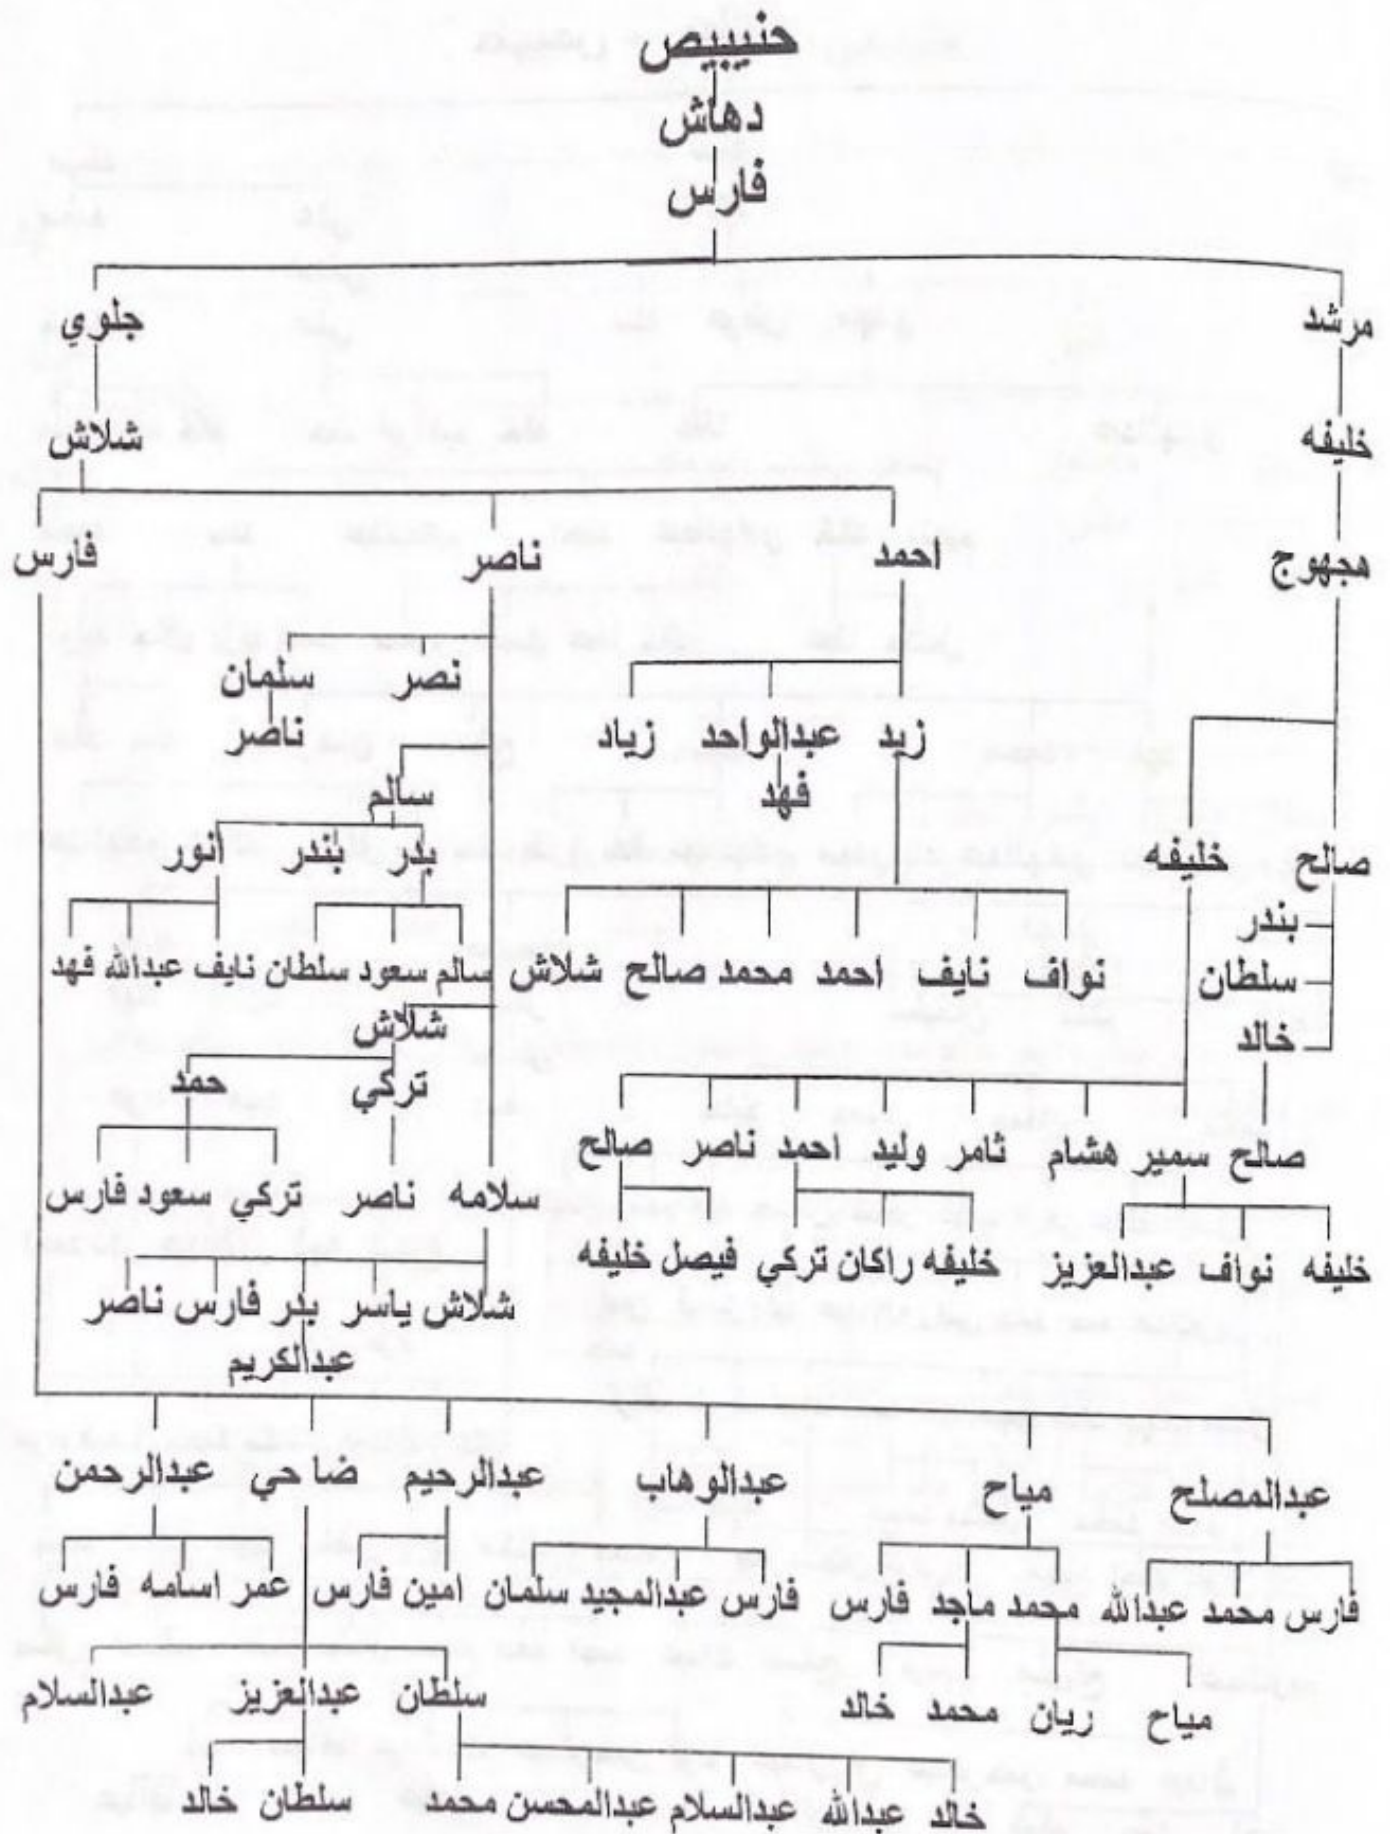 حنيبيص
دهاش
فارس
مرشد جلوي
خليفه شلاش
مجهوج احمد ناصر فارس
نصر سلمان
ناصر
زيد عبدالواحد زياد
فهد
سالم
صالح خليفه بدر بندر انور
بندر
سلطان
خالد
نواف نايف احمد محمد صالح شلاش سالم سعود سلطان نايف عبدالله فهد
شلاش
تركي حمد
صالح سمير هشام ثامر وليد احمد ناصر صالح
سلامه ناصر تركي سعود فارس
خليفه نواف عبدالعزيز خليفه راكان تركي فيصل خليفه
شلاش ياسر بدر فارس ناصر
عبدالكريم
عبدالمصلح مياح عبدالوهاب عبدالرحيم ضاحي عبدالرحمن
فارس محمد عبدالله محمد ماجد فارس فارس عبدالمجيد سلمان امين فارس عمر اسامه فارس
مياح ريان محمد خالد سلطان عبدالعزيز عبدالسلام
خالد عبدالله عبدالسلام عبدالمحسن محمد سلطان خالد